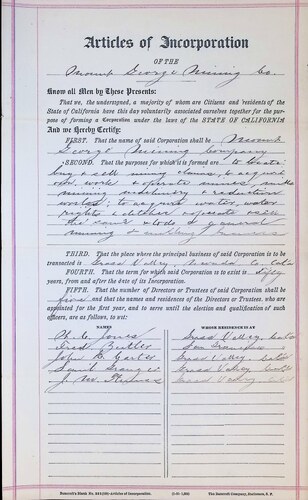 Articles of Incorporation
OF THE
Mount George Mining Co.
Know all Men by These Presents:
That we, the undersigned, a majority of whom are Citizens and residents of the
State of California have this day voluntarily associated ourselves together for the pur-
pose of forming a Corporation under the laws of the STATE OF CALIFORNIA
And we Hereby Certify:
FIRST. That the name of said Corporation shall be Mount
George Mining Company
SECOND. That the purposes for which it is formed are to locate
buy & sell mining claims, to acquire
own, work & operate mines, mills
mining machinery & reduction
works; to acquire water, water
rights & ditches
and to do a general
mining & milling business
THIRD. That the place where the principal business of said Corporation is to be
transacted is Grass Valley, Nevada Co. Cala
FOURTH. That the term for which said Corporation is to exist is fifty
years, from and after the date of its Incorporation.
FIFTH. That the number of Directors or Trustees of said Corporation shall be
five and that the names and residences of the Directors or Trustees, who are
appointed for the first year, and to serve until the election and qualification of such
officers, are as follows, to wit:
NAMES WHOSE RESIDENCE IS AT
Jones Grass Valley,
Fred Butler San Francisco
John Carter Grass Valley,
Grass Valley
J. Thomas Grass Valley
Articles of Incorporation.
The Bancroft Company, Stationers, S. F.